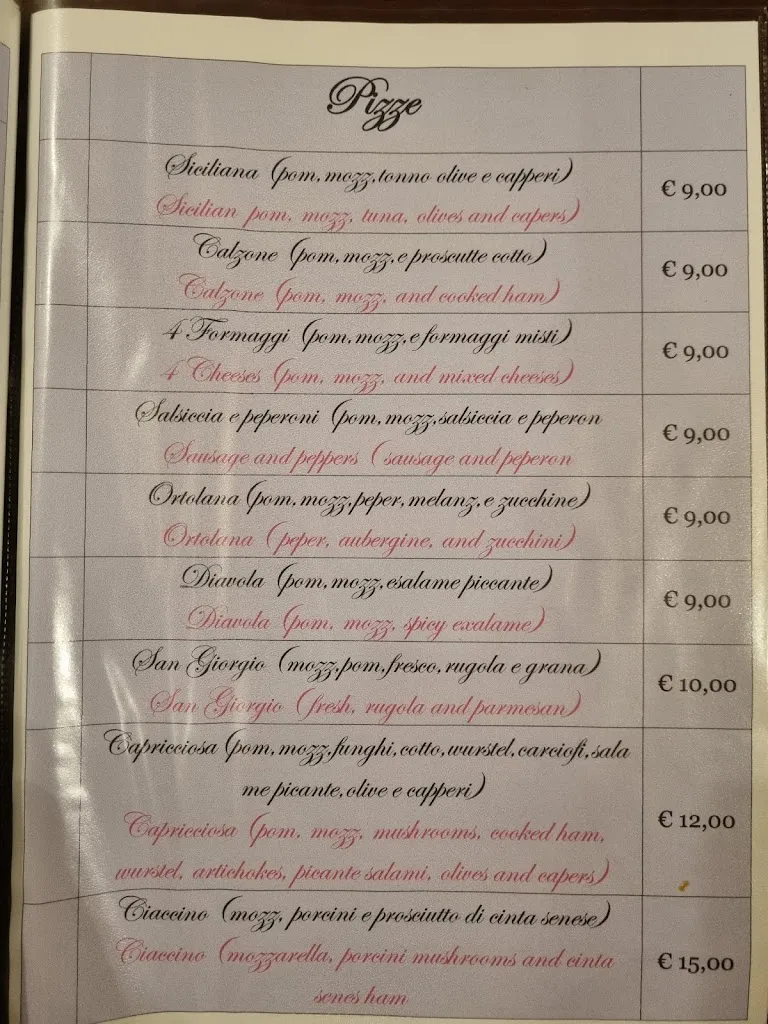 Pizze
Siciliana (pom, mozz, tonno olive e capperi)
€ 9,00
Sicilian pom, mozz, tuna, olives and capers)
Calzone (pom, mozz, e proscutte cotto)
€ 9,00
Calzone (pom, mozz, and cooked ham)
4 Formaggi (pom, mozz, e formaggi misti)
€ 9,00
4 Cheeses (pom, mozz, and mixed cheeses)
Salsiccia e peperoni (pom, mozz, salsiccia e peperon
€ 9,00
Sausage and peppers (sausage and peperon
Ortolana (pom, mozz, peper, melanz, e zucchine)
€ 9,00
Ortolana (peper, aubergine, and zucchini)
Diavola (pom, mozz, esalame piccante)
€ 9,00
Diavola (pom, mozz, spicy exalame)
San Giorgio (mozz, pom, fresco, rugola e grana)
€ 10,00
San Giorgio (fresh, rugola and parmesan)
Capricciosa (pom, mozz, funghi, cotto, wurstel, carciofi, sala
me picante, olive e capperi)
€ 12,00
Capricciosa (pom, mozz, mushrooms, cooked ham,
wurstel, artichokes, picante salami, olives and capers)
Ciaccino (mozz, porcini e prosciutto di cinta senese)
€ 15,00
Ciaccino (mozzarella, porcini mushrooms and cinta
senes ham